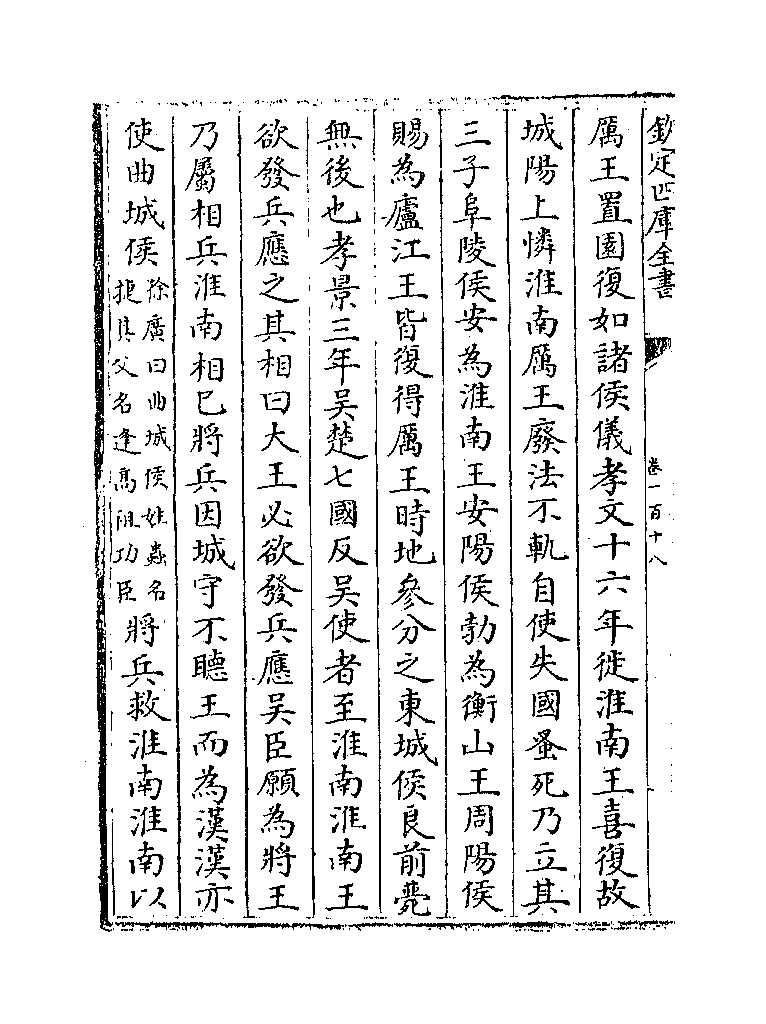 欽定四庫全書
卷一百十八
厲王置園復如諸侯儀孝文十六年徙淮南王喜復故
城陽上憐淮南厲王廢法不軌自使失國蚤死乃立其
三子阜陵侯安為淮南王安陽侯勃為衡山王周陽侯
賜為廬江王皆復得厲王時地參分之東城侯良前薨
無後也孝景三年吳楚七國反吳使者至淮南淮南王
欲發兵應之其相曰大王必欲發兵應吳臣願為將王
乃屬相兵淮南相已將兵因城守不聽王而為漢漢亦
使曲城侯
徐廣曰曲城侯姓蟲名
捷其父名逢高祖功臣
將兵救淮南淮南以